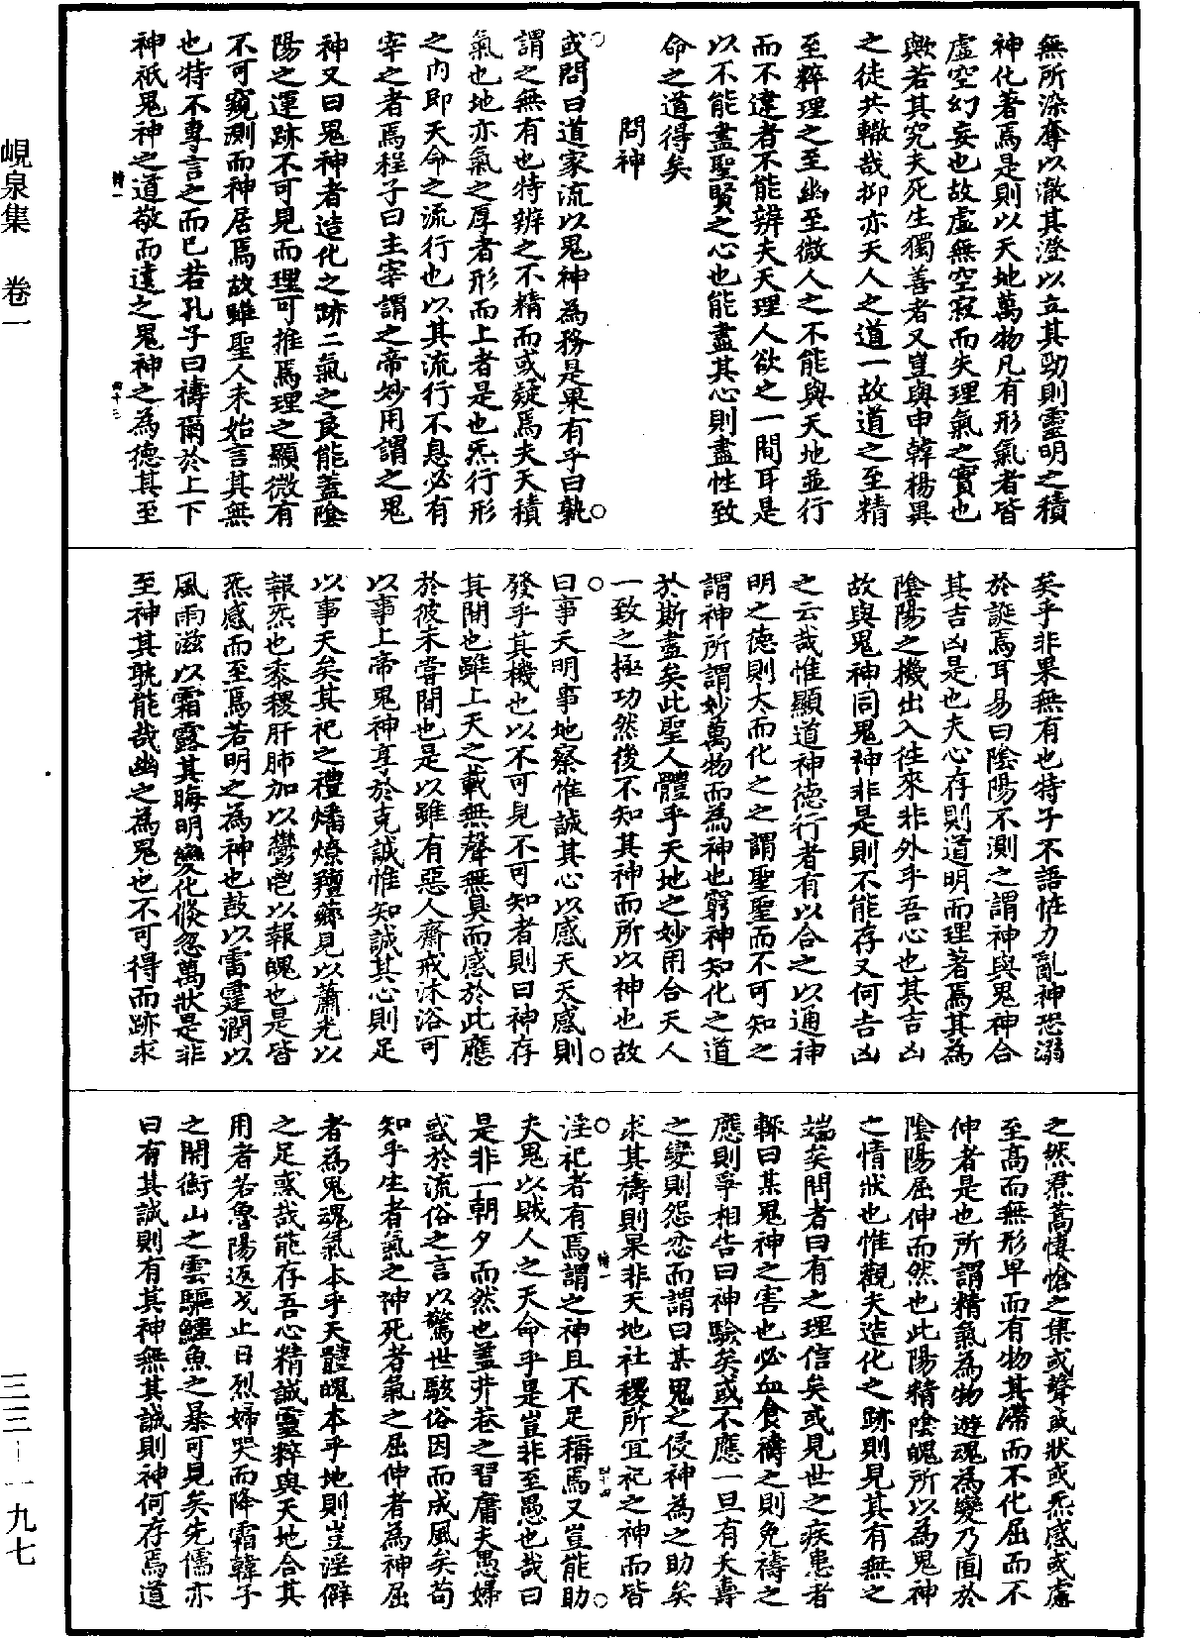 無所染奪以澈其澄以立其勁則靈明之積
神化著焉是則以天地萬物凡有形氣者皆
虛空幻妄也故虛無空寂而失理氣之實也
歟若其究夫死生獨善者又豈與申韓楊異
之徒共轍哉抑亦天人之道一故道之至精
至粹理之至幽至微人之不能與天地並行
而不違者不能辨夫天理人欲之一間耳是
以不能盡聖賢之心也能盡其心則盡性致
命之道得矣
問神
或問曰道家流以鬼神為務是果有乎曰孰
謂之無有也特辨之不精而或疑焉夫天積
氣也地亦氣之厚者形而上者是也炁行形
之內即天命之流行也以其流行不息必有
宰之者焉程子曰主宰謂之帝妙用謂之鬼
神又曰鬼神者造化之跡二氣之良能蓋陰
陽之運跡不可見而理可推焉理之顯微有
不可窺測而神居焉故雖聖人未始言其無
也特不專言之而已若孔子曰禱爾於上下
神祇鬼神之道敬而遠之鬼神之為德其至
矣乎非果無有也特子不語怪力亂神恐溺
於誕焉耳易曰陰陽不測之謂神與鬼神合
其吉凶是也夫心存則道明而理著焉其為
陰陽之機出入往來非外乎吾心也其吉凶
故與鬼神同鬼神非是則不能存又何吉凶
之云哉惟顯道神德行者有以合之以通神
明之德則大而化之之謂聖聖而不可知之
謂神所謂妙萬物而為神也窮神知化之道
於斯盡矣此聖人體乎天地之妙用合天人
一致之極功然後不知其神而所以神也故
曰事天明事地察惟誠其心以感天天感則
發乎其機也以不可見不可知者則曰神存
其間也雖上天之載無聲無臭而感於此應
於彼未嘗間也是以雖有惡人齋戒沐浴可
以事上帝鬼神享於克誠惟知誠其心則足
以事天矣其祀之禮燔燎羶薌見以蕭光以
報炁也黍稷肝肺加以鬱鬯以報魄也是皆
炁感而至焉若明之為神也鼓以雷霆潤以
風雨滋以霜露其晦明變化倏忽萬狀是非
至神其孰能哉幽之為鬼也不可得而跡求
之然焄蒿悽愴之集或聲或狀或炁感或處
至高而無形卑而有物其滯而不化屈而不
伸者是也所謂精氣為物遊魂為變乃囿於
陰陽屈伸而然也此陽精陰魄所以為鬼神
之情狀也惟觀夫造化之跡則見其有無之
端矣問者曰有之理信矣或見世之疾患者
輒曰某鬼神之害也必血食禱之則免禱之
應則爭相告曰神驗矣或不應一旦有夭壽
之變則怨忿而謂曰某鬼之侵神為之助矣
求其禱則果非天地社稷所宜祀之神而皆
淫祀者有焉謂之神且不足稱焉又豈能助
夫鬼以賊人之天命乎是豈非至愚也哉曰
是非一朝夕而然也蓋井巷之習庸夫愚婦
惑於流俗之言以驚世駭俗因而成風矣苟
知乎生者氣之神死者氣之屈伸者為神屈
者為鬼魂氣本乎天體魄本乎地則豈淫僻
之足惑哉能存吾心精誠靈粹與天地合其
用者若魯陽返戈止日烈婦哭而降霜韓子
之開衡山之雲驅鱷魚之暴可見矣先儒亦
曰有其誠則有其神無其誠則神何存焉道
峴泉集 卷一
三三－一九七